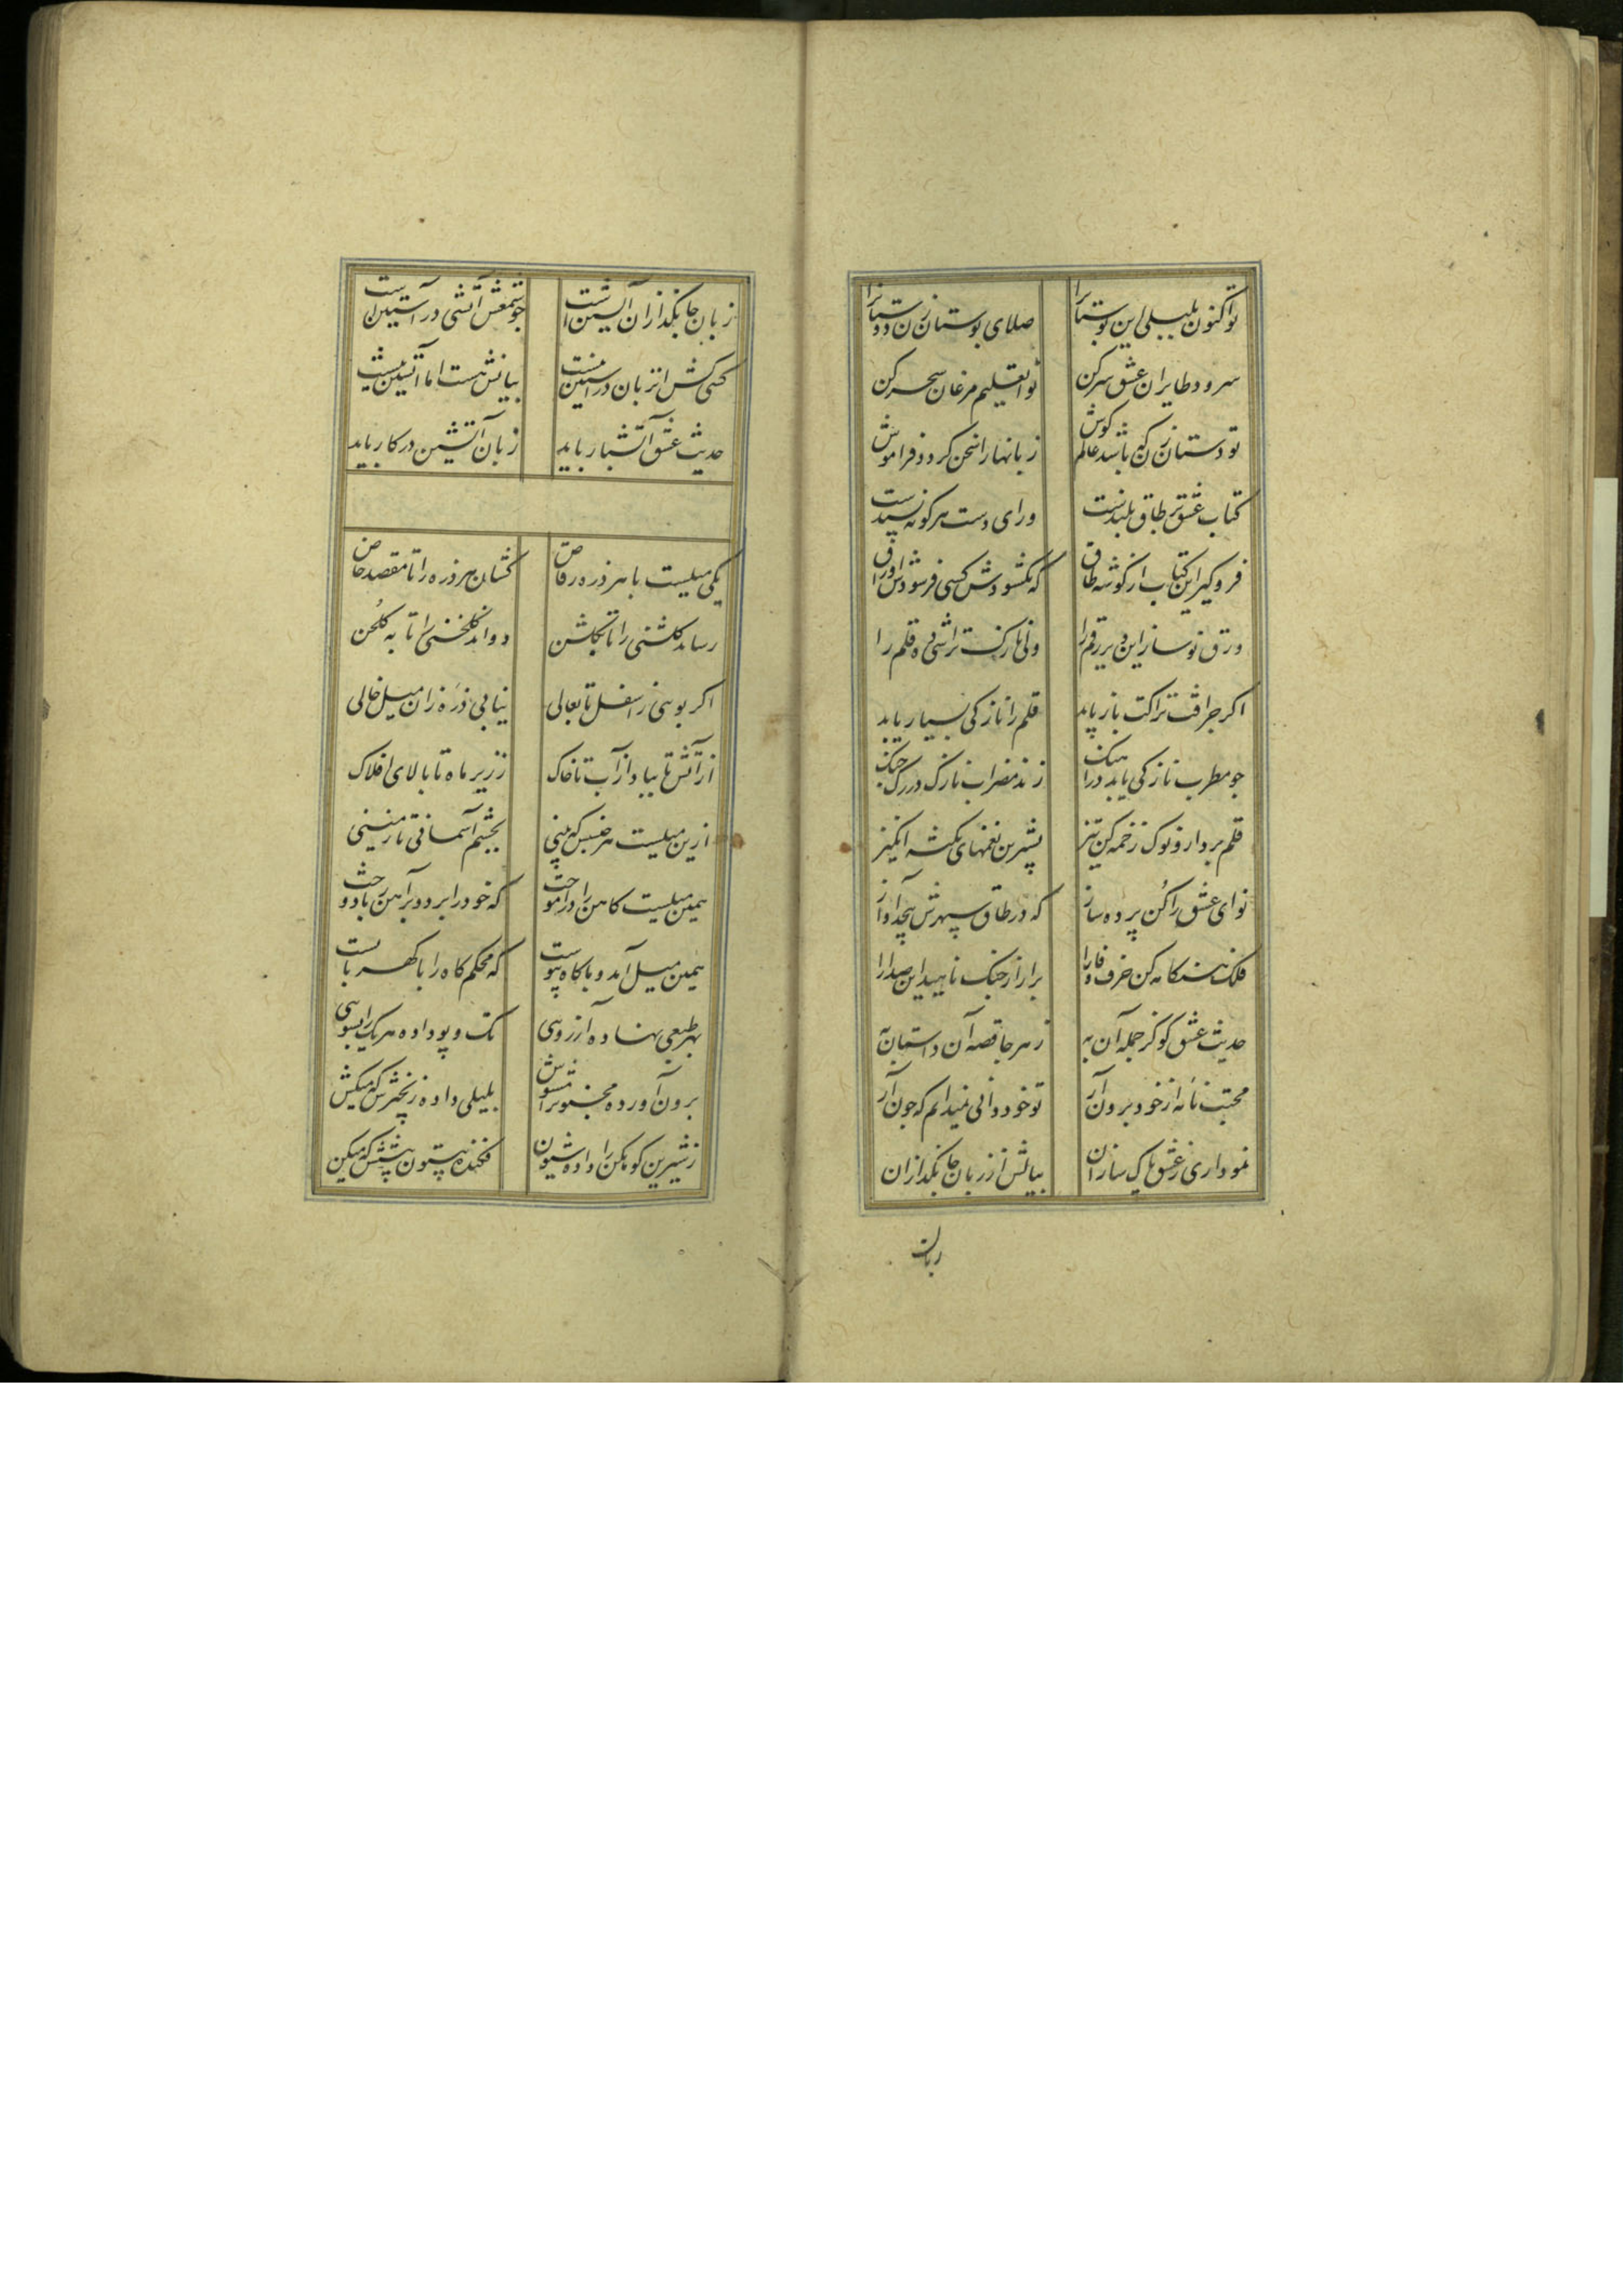 تو اکنون بلبلی این بوستانرا صلای بوستان زن دوستانرا
سرود طایران عشق سر کن نوا تعلیم مرغان سحر کن
تو دستان زن که باشد عالم کوش زبانها را سخن کردد فراموش
کتاب عشق بر طاق بلندست ورای دست هر کوته پسندست
فرو کیر این کتاب از کوشه طاق که نکشودش کسی فرسودش اوراق
ورق نو ساز این دیرین رقم را ولی نازک تراشی ده قلم را
اکر حرافت نزاکت بار باید قلم را نازکی بسیار باید
جو مطرب نازکی باید در آهنک زند مضراب نازک در رک جنک
قلم بردار و نوک زخمه کن تیز بشیرین نغمهای نکته انکیز
نوای عشق را کن پرده ساز که در طاق سپهرش پیچد آواز
فلک هنکامه کن حرف وفا را برار از جنک ناهید این صدا را
حدیث عشق کو کز جمله آن به ز هر جا قصه آن داستان به
محبت نامه از خود برون آر تو خود دانی نمیدانم که جون آر
نموداری ز عشق پاک سازان بیانش از زبان جانکدازان
زبان
زبان جانکدازان آتشین است جو شمعش آتشی در آستین است
کسی کش آن زبان در آستین نیست بیانش هست اما آتشین نیست
حدیث عشق آتشبار باید زبان آتشین در کار باید
یکی میلیست با هر ذره رقاص کشان هر ذره را تا مقصد خاص
رساند کلشنی را تا بکلشن دواند کلخنی را تا به کلخن
اکر پویی ز اسفل تا بعالی نیابی ذره زان میل خالی
از آتش تا بباد از آب تا خاک ز زیر ماه تا بالای افلاک
ازین میلیست هر جنبش که بینی بجشم آسمانی تا زمینی
همین میلیست کاهن را درآموخت که خود را برد و بر آهن ربا دوخت
همین میل آمد و با کاه پیوست که محکم کاه را با کهربا بست
بهر طبعی نهاده آرزویی تک و پو داده هر یک را بسویی
برون آورده مجنون را مشوش بلیلی داده زنجیرش که میکش
ز شیرین کوهکن را داده شیون فکنده بیستون پیشش که میکن